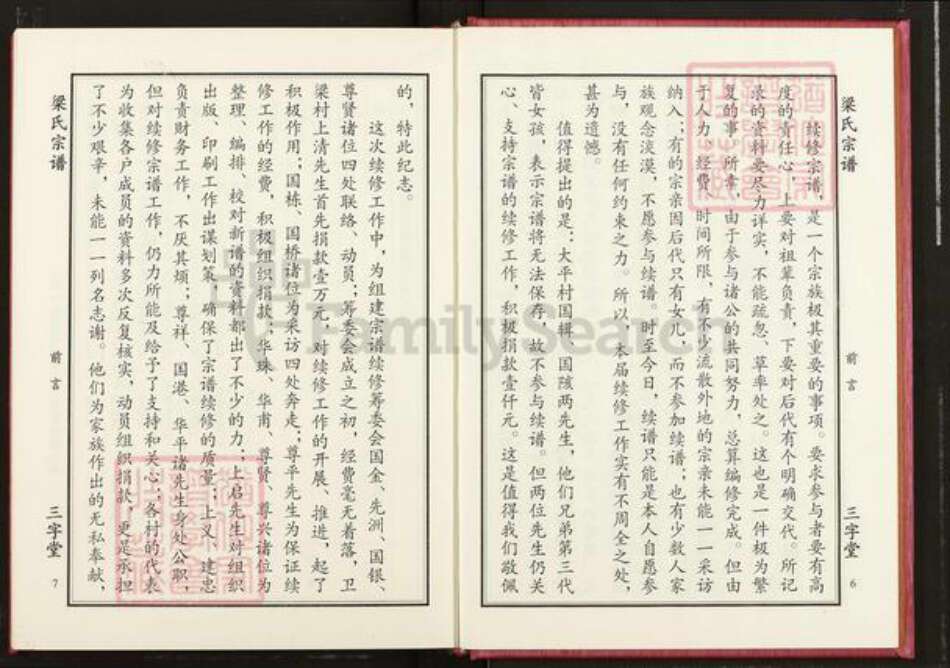 梁氏宗谱
前言
三字堂
6
续修宗谱，是一个宗族极其重要的事项。要求参与者要有高
度的责任心，上要对祖辈负责，下要对后代有个明确交代。所记
录的资料要尽力详实，不能疏忽、草率处之。这也是一件极为繁
复的事。所幸，由于参与诸公的共同努力，总算编修完成。但由
于人力、经费、时间所限，有不少流散外地的宗亲未能一一采访
纳入；有的宗亲因后代只有女儿，而不参加续谱；也有少数人家
族观念淡漠，不愿参与续谱。时至今日，续谱只能是本人自愿参
与，没有任何约束之力。所以，本届续修工作实有不周全之处，
甚为遗憾。
值得提出的是：大平村国辑、国陔两先生，他们兄弟第三代
皆女孩，表示宗谱将无法保存，故不参与续谱。但两位先生仍关
心、支持宗谱的续修工作，积极捐款壹仟元。这是值得我们敬佩
的，特此纪志。
这次续修工作中，为组建宗谱续修筹委会国金、先洲、国银、
尊贤诸位四处联络、动员；筹委会成立之初，经费毫无着落，卫
梁村上清先生首先捐款壹万元，对续修工作的开展、推进，起了
积极作用；国栋、国桥诸位为采访四处奔走；尊平先生为保证续
修工作的经费，积极组织捐款；华珠、华甫、尊贤、尊兴诸位为
整理、编排、校对新谱的资料都出了不少的力；上启先生对组织
出版、印刷工作出谋划策，确保了宗谱续修的质量；上义、建忠
负责财务工作，不厌其烦；尊祥、国港、华平诸先生身处公职，
但对续修宗谱工作，仍力所能及给予了支持和关心；各村的代表
为收集各户成员的资料多次反复核实，动员组织捐款，更是承担
了不少艰辛，未能一一列名志谢。他们为家族作出的无私奉献，
梁氏宗谱
前言
三字堂
7
FamilySearch